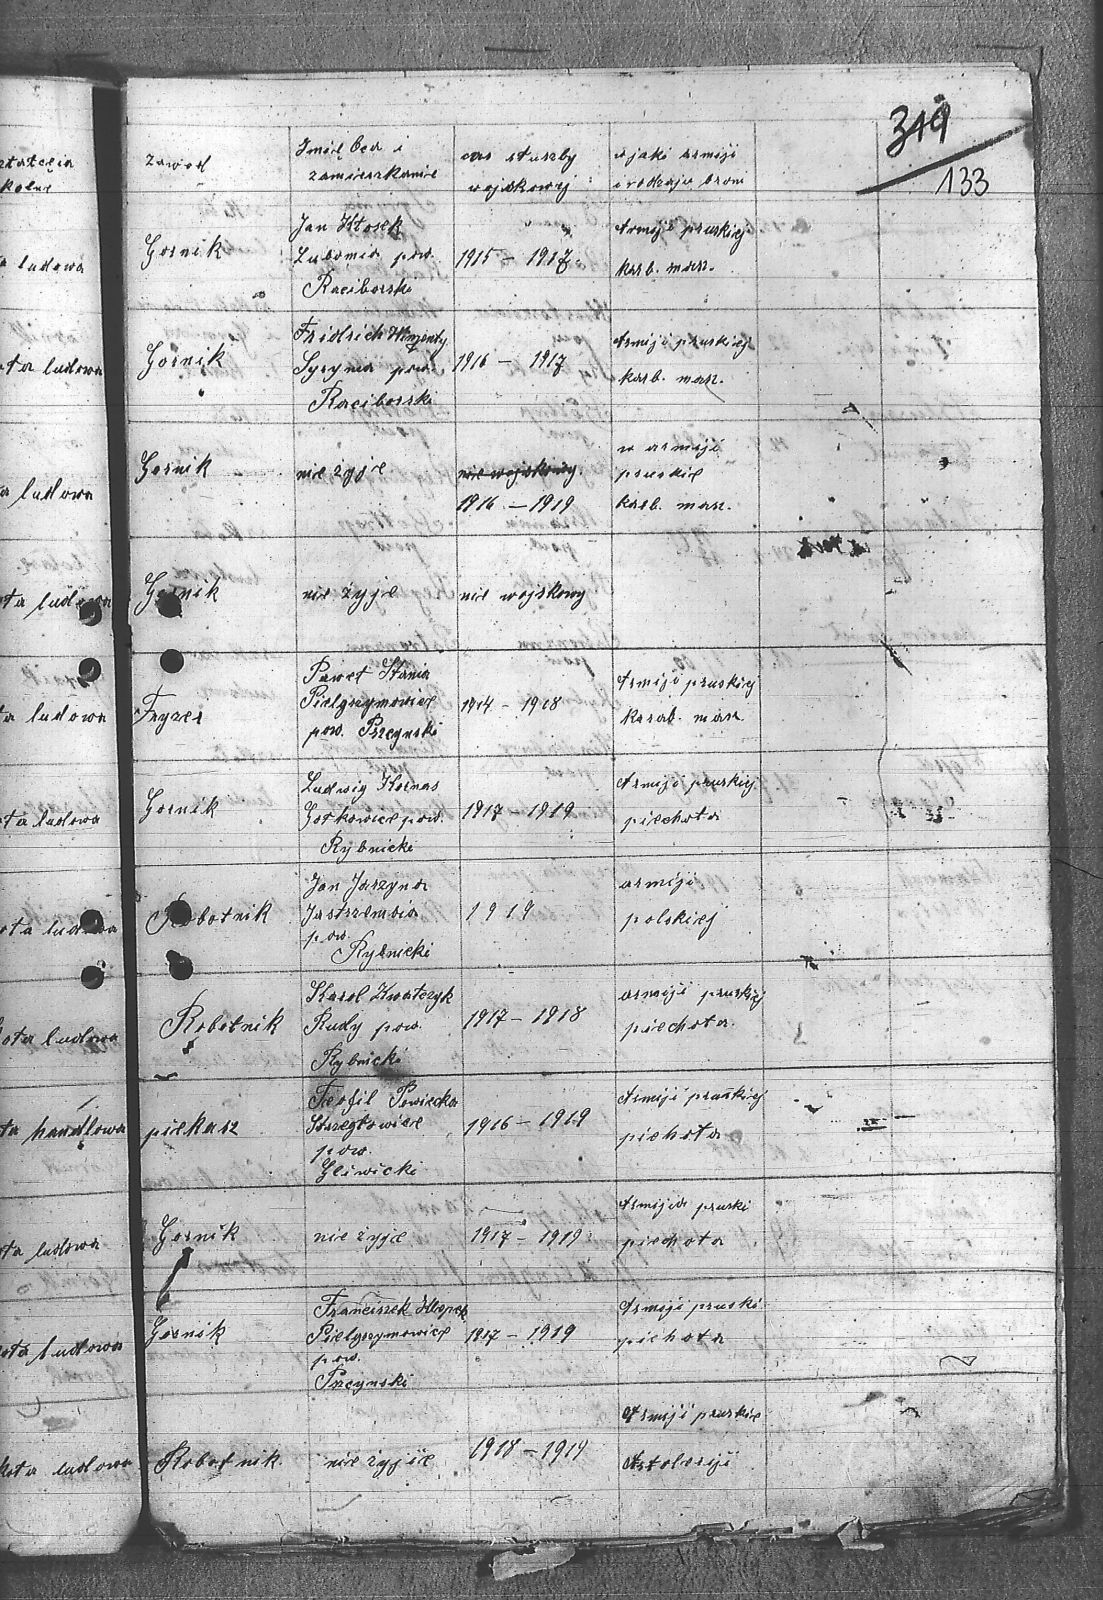 319
133
ztałcenia
kolne
zawod
Imię Oca i
zamieszkanie
czas służby
wojskowej
w jaki armiji
i rodzaju broni
ludowa
Gornik
Jan Kłosek
Lubomia pow.
Raciborski
1915 – 1917
Armiji pruskiej
karb. masz.
ota ludowa
Gornik
Fridrich
Syrynia pow.
Raciborski
1916 – 1917
Armiji pruskiej
karb. masz.
a ludowa
Gornik
nie żyje
nie wojskowy
1916 – 1919
w armiji
pruskie
karb. masz.
ota ludowa
Gornik
nie żyje
nie wojskowy
a ludowa
Fryzer
Paweł Stania
Pielgrzymowice
pow. Pszcynski
1914 – 1918
Armiji pruskiej
karab. masz
ota ludowa
Gornik
Ludwig Kornas
Gołkowice pow.
Rybnicki
1917 – 1919
Armiji pruskiej
piechota
ota ludowa
Robotnik
Jan Jarzyna
Jastrzembia
pow.
Rybnicki
1919
armiji
polskiej
ota ludowa
Robotnik
Karol Kwatczyk
Rudy pow.
Rybnicki
1917 – 1918
armiji pruskiej
piechota
ta handlowa
piekasz
Teofil Powiecka
pow.
Gliwicki
1916 – 1919
Armiji pruskiej
piehota
ota ludowa
Gornik
nie żyje
1917 – 1919
Armijia pruski
piechota
ota ludowa
Gornik
Franciszek
Pielgrzymowice
pow.
Pszcynski
1917 – 1919
Armiji pruski
piehota
kota ludowa
Robotnik
nie żyjie
1918 – 1919
Armiji pruskie
Artoleriji